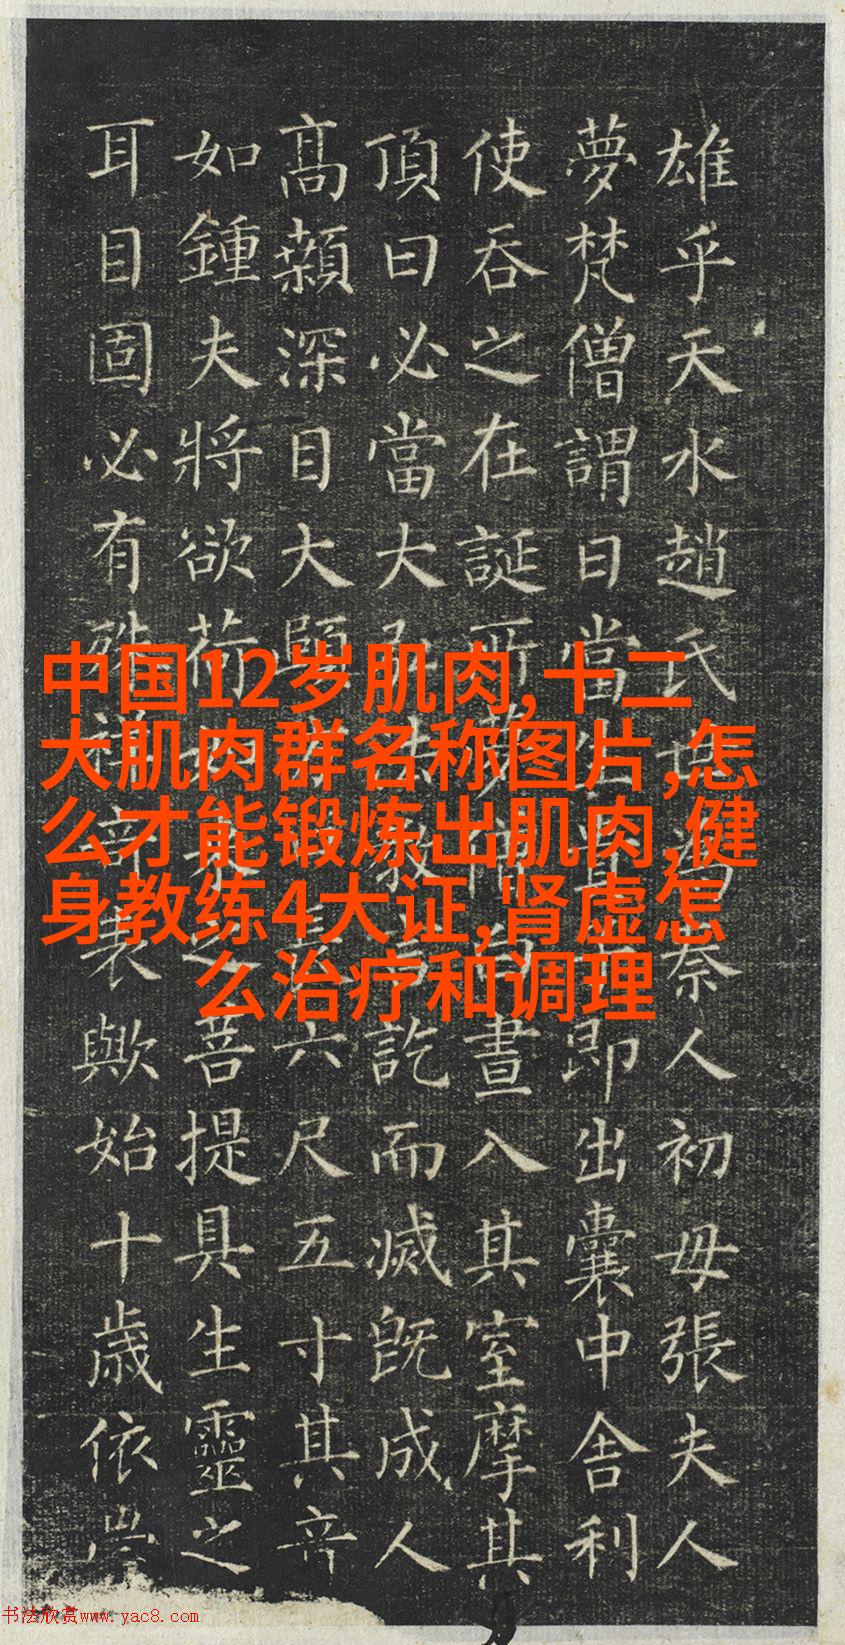 雄乎天水趙氏世為秦人初母張夫人
夢梵僧謂曰當生貴子即出囊中舍利
使吞之在誕所夢僧白晝入其室摩其
頂曰必當大弘法教言訖而滅既成人
高顙深目大頤方口長六尺五寸其音
如鍾夫將欲荷如來之菩提具生靈之
耳目固必有殊祥奇表歟始十歲依
中国12岁肌肉,十二
大肌肉群名称图片,怎
么才能锻炼出肌肉,健
身教练4大证,肾虚怎
么治疗和调理
书法欣赏www.yac8.com